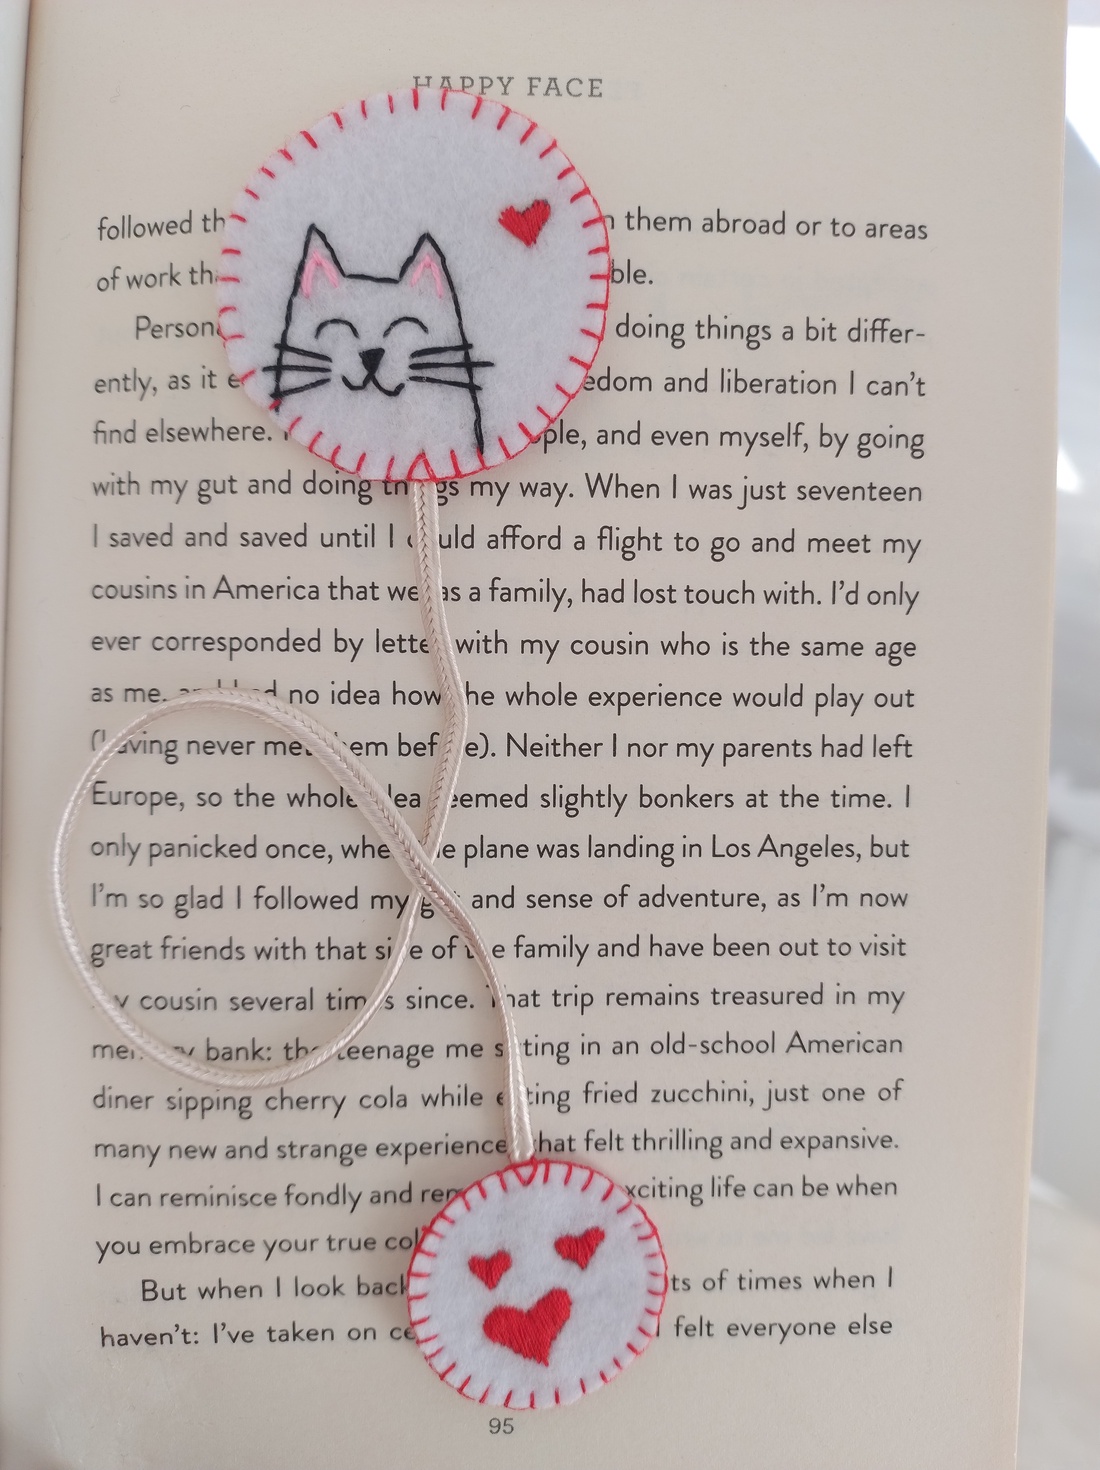 HAPPY FACE
followed them abroad or to areas
of work
doing things a bit differ-
ently, as it and liberation I can't
find elsewhere. and even myself, by going
with my gut and doing things my way. When I was just seventeen
I saved and saved until I could afford a flight to go and meet my
cousins in America that we as a family, had lost touch with. I'd only
ever corresponded by letter with my cousin who is the same age
as me, and had no idea how the whole experience would play out
(having never met them before). Neither I nor my parents had left
Europe, so the whole idea seemed slightly bonkers at the time. I
only panicked once, when the plane was landing in Los Angeles, but
I'm so glad I followed my gut and sense of adventure, as I'm now
great friends with that side of the family and have been out to visit
my cousin several times since. That trip remains treasured in my
memory bank: the teenage me sitting in an old-school American
diner sipping cherry cola while eating fried zucchini, just one of
many new and strange experiences that felt thrilling and expansive.
I can reminisce fondly and exciting life can be when
you embrace your true
But when I look back of times when I
haven't: I've taken on felt everyone else
95